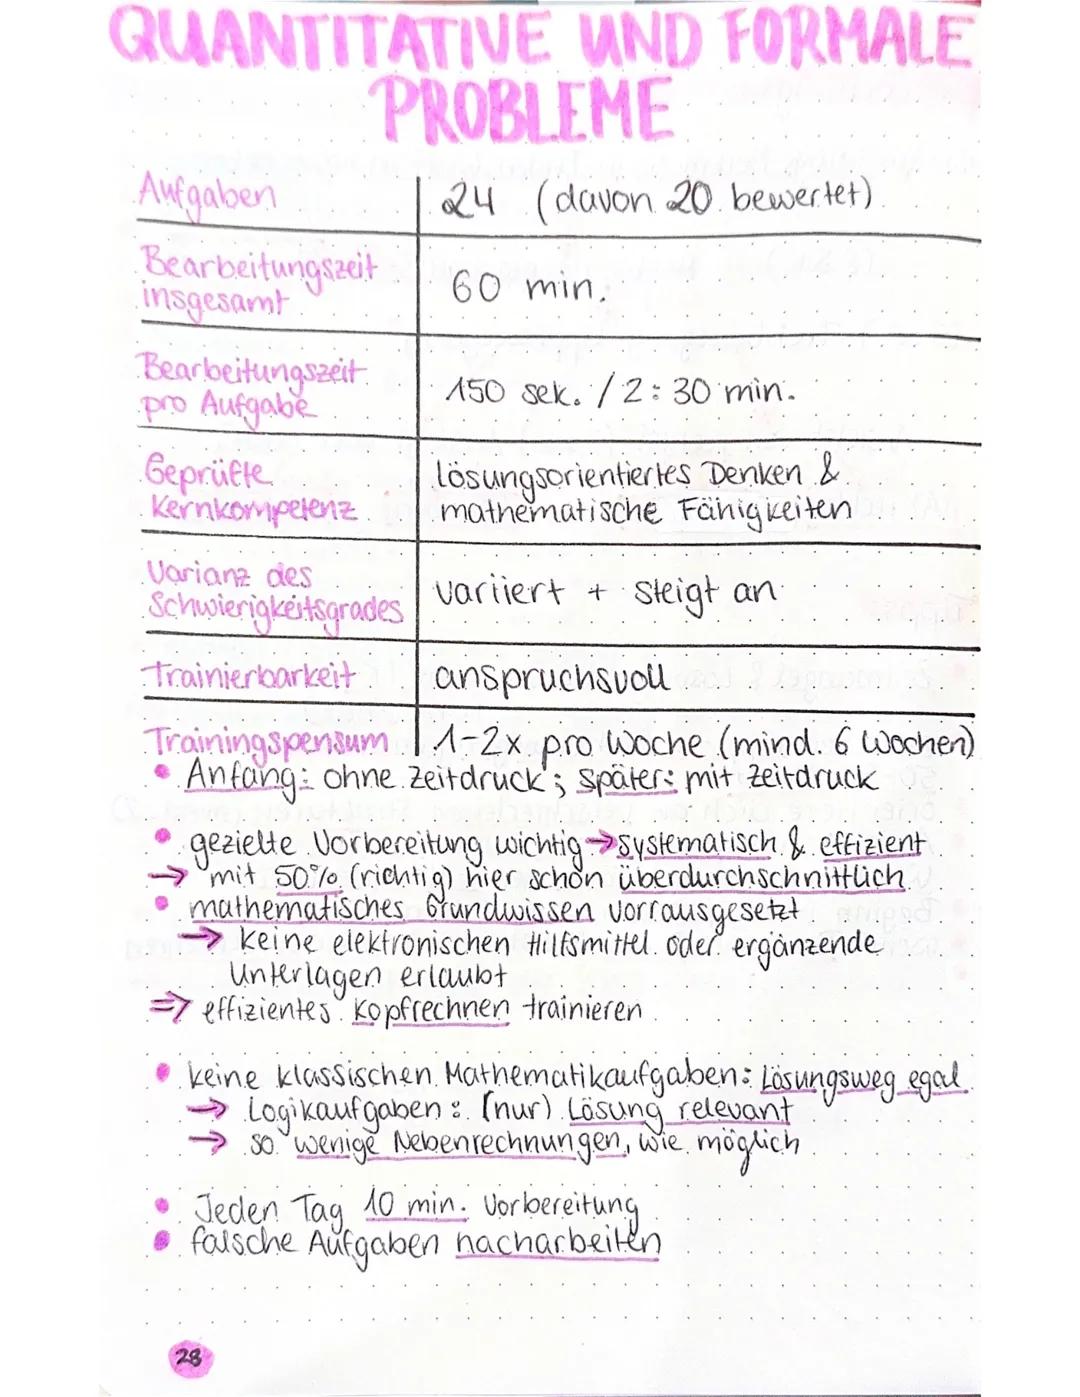 QUANTITATIVE UND FORMALE
PROBLEME
Aufgaben
24 (davon 20 bewertet)
Bearbeitungszeit
insgesamt
60 min.
Bearbeitungszeit
pro Aufgabe
150 sek. / 2:30 min.
Geprüfte
Kernkompetenz
lösungsorientiertes Denken &
mathematische Fähigkeiten
Varianz des
Schwierigkeitsgrades
variiert + steigt an
Trainierbarkeit
anspruchsvoll
Trainingspensum
1-2x pro Woche (mind. 6 Wochen)
• Anfang: ohne Zeitdruck; später: mit Zeitdruck
• gezielte Vorbereitung wichtig → systematisch & effizient
→ mit 50% (richtig) hier schon überdurchschnittlich
• mathematisches Grundwissen vorrausgesetzt
→ keine elektronischen Hilfsmittel oder ergänzende
Unterlagen erlaubt
⇒ effizientes Kopfrechnen trainieren
• keine klassischen Mathematikaufgaben: Lösungsweg egal
→ Logikaufgaben: (nur) Lösung relevant
→ so wenige Nebenrechnungen, wie möglich
• Jeden Tag 10 min. Vorbereitung
• falsche Aufgaben nacharbeiten
28